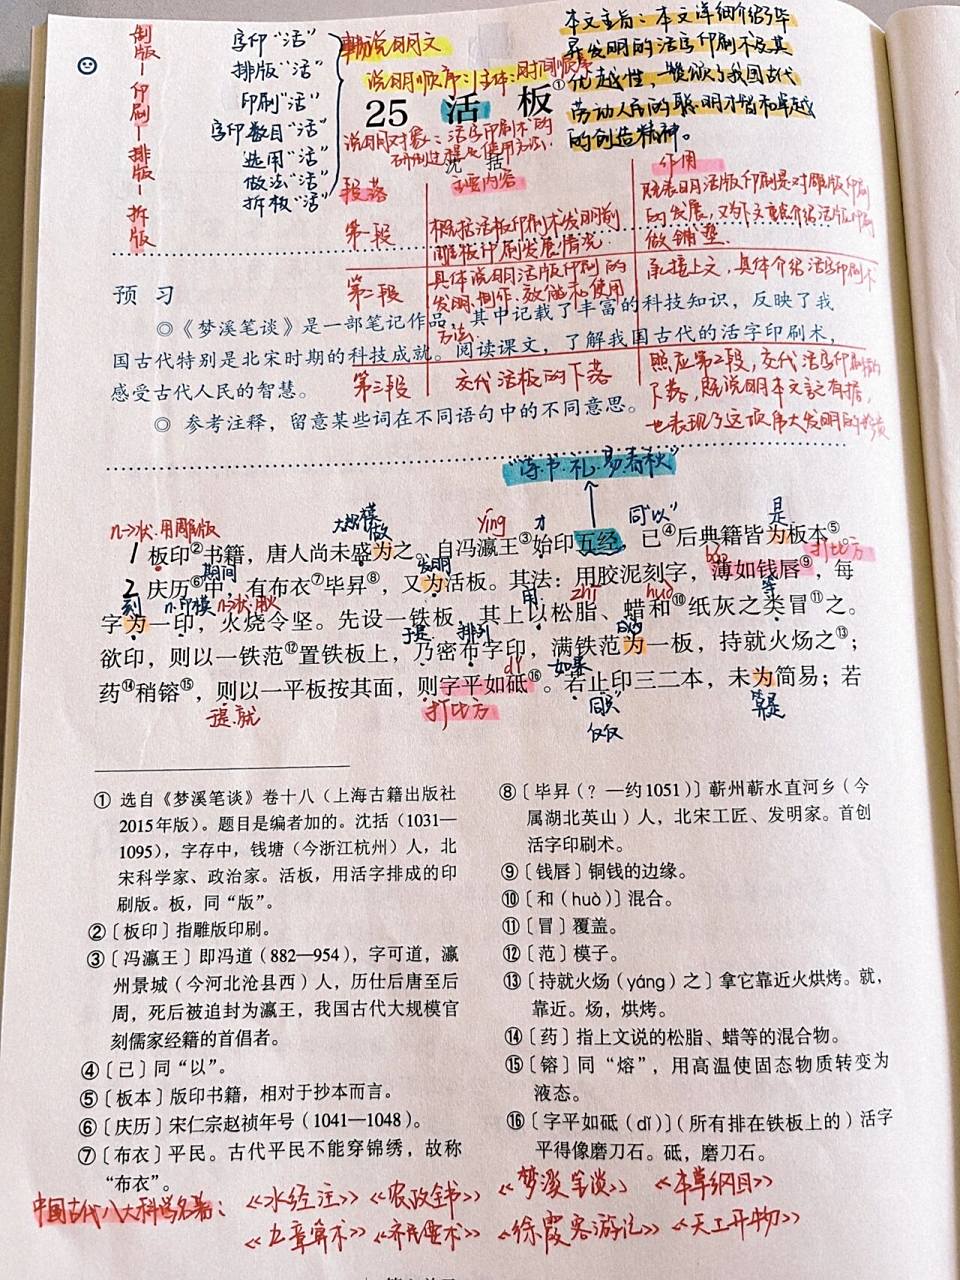 制版—印刷—排版—拆版
字印“活”
排版“活”
印刷“活”
字印数目“活”
选用“活”
做法“活”
拆板“活”
事物说明文
说明顺序:主体:时间顺序
本文主旨:本文详细介绍了毕
昇发明的活字印刷术及其
优越性,赞颂了我国古代
劳动人民的聪明才智和卓越
的创造精神。
25 活 板①
说明对象:活字印刷术的
制过程及使用方法.
沈 括
段落 主要内容 作用
第一段
概括活板印刷术发明前
雕板印刷发展情况.
既表明活版印刷是对雕版印刷
的发展,又为下文介绍活版印刷
做铺垫.
第二段
具体说明活版印刷的
发明.制作.效能和使用
方法.
承接上文,具体介绍活字印刷术
第三段
交代活板的下落
照应第2段,交代活字印的
下落,既说明本文记有据,
也表现了这项伟大发明的珍贵
预 习
◎《梦溪笔谈》是一部笔记作品,其中记载了丰富的科技知识,反映了我
国古代特别是北宋时期的科技成就。阅读课文,了解我国古代的活字印刷术,
感受古代人民的智慧。
◎ 参考注释,留意某些词在不同语句中的不同意思。
“诗·书·礼·易·春秋”
n→状.用雕版 大规模 做 yíng 才 同“以” 是
1 板印②书籍,唐人尚未盛为之。自冯瀛王③始印五经,已④后典籍皆为板本⑤。
期间 发明 打比方
2 庆历⑥中,有布衣⑦毕昇⑧,又为活板。其法:用胶泥刻字,薄如钱唇⑨,每
刻 n.印模 n→状.用火 用 zhī huò 等
字为一印,火烧令坚。先设一铁板,其上以松脂、蜡和⑩纸灰之类冒⑪之。
于是 排列 成为
欲印,则以一铁范⑫置铁板上,乃密布字印,满铁范为一板,持就火炀之⑬;
dǐ 如果
药⑭稍镕⑮,则以一平板按其面,则字平如砥⑯。若止印三二本,未为简易;若
就 打比方 同“只” 算是
仅仅
① 选自《梦溪笔谈》卷十八(上海古籍出版社
2015年版)。题目是编者加的。沈括(1031—
1095),字存中,钱塘(今浙江杭州)人,北
宋科学家、政治家。活板,用活字排成的印
刷版。板,同“版”。
②〔板印〕指雕版印刷。
③〔冯瀛王〕即冯道(882—954),字可道,瀛
州景城(今河北沧县西)人,历仕后唐至后
周,死后被追封为瀛王,我国古代大规模官
刻儒家经籍的首倡者。
④〔已〕同“以”。
⑤〔板本〕版印书籍,相对于抄本而言。
⑥〔庆历〕宋仁宗赵祯年号(1041—1048)。
⑦〔布衣〕平民。古代平民不能穿锦绣,故称
“布衣”。
⑧〔毕昇(?—约1051)〕蕲州蕲水直河乡(今
属湖北英山)人,北宋工匠、发明家。首创
活字印刷术。
⑨〔钱唇〕铜钱的边缘。
⑩〔和(huò)〕混合。
⑪〔冒〕覆盖。
⑫〔范〕模子。
⑬〔持就火炀(yáng)之〕拿它靠近火烘烤。就,
靠近。炀,烘烤。
⑭〔药〕指上文说的松脂、蜡等的混合物。
⑮〔镕〕同“熔”,用高温使固态物质转变为
液态。
⑯〔字平如砥(dǐ)〕(所有排在铁板上的)活字
平得像磨刀石。砥,磨刀石。
中国古代八大科学名著:《水经注》《农政全书》《梦溪笔谈》《本草纲目》
《九章算术》《齐民要术》《徐霞客游记》《天工开物》